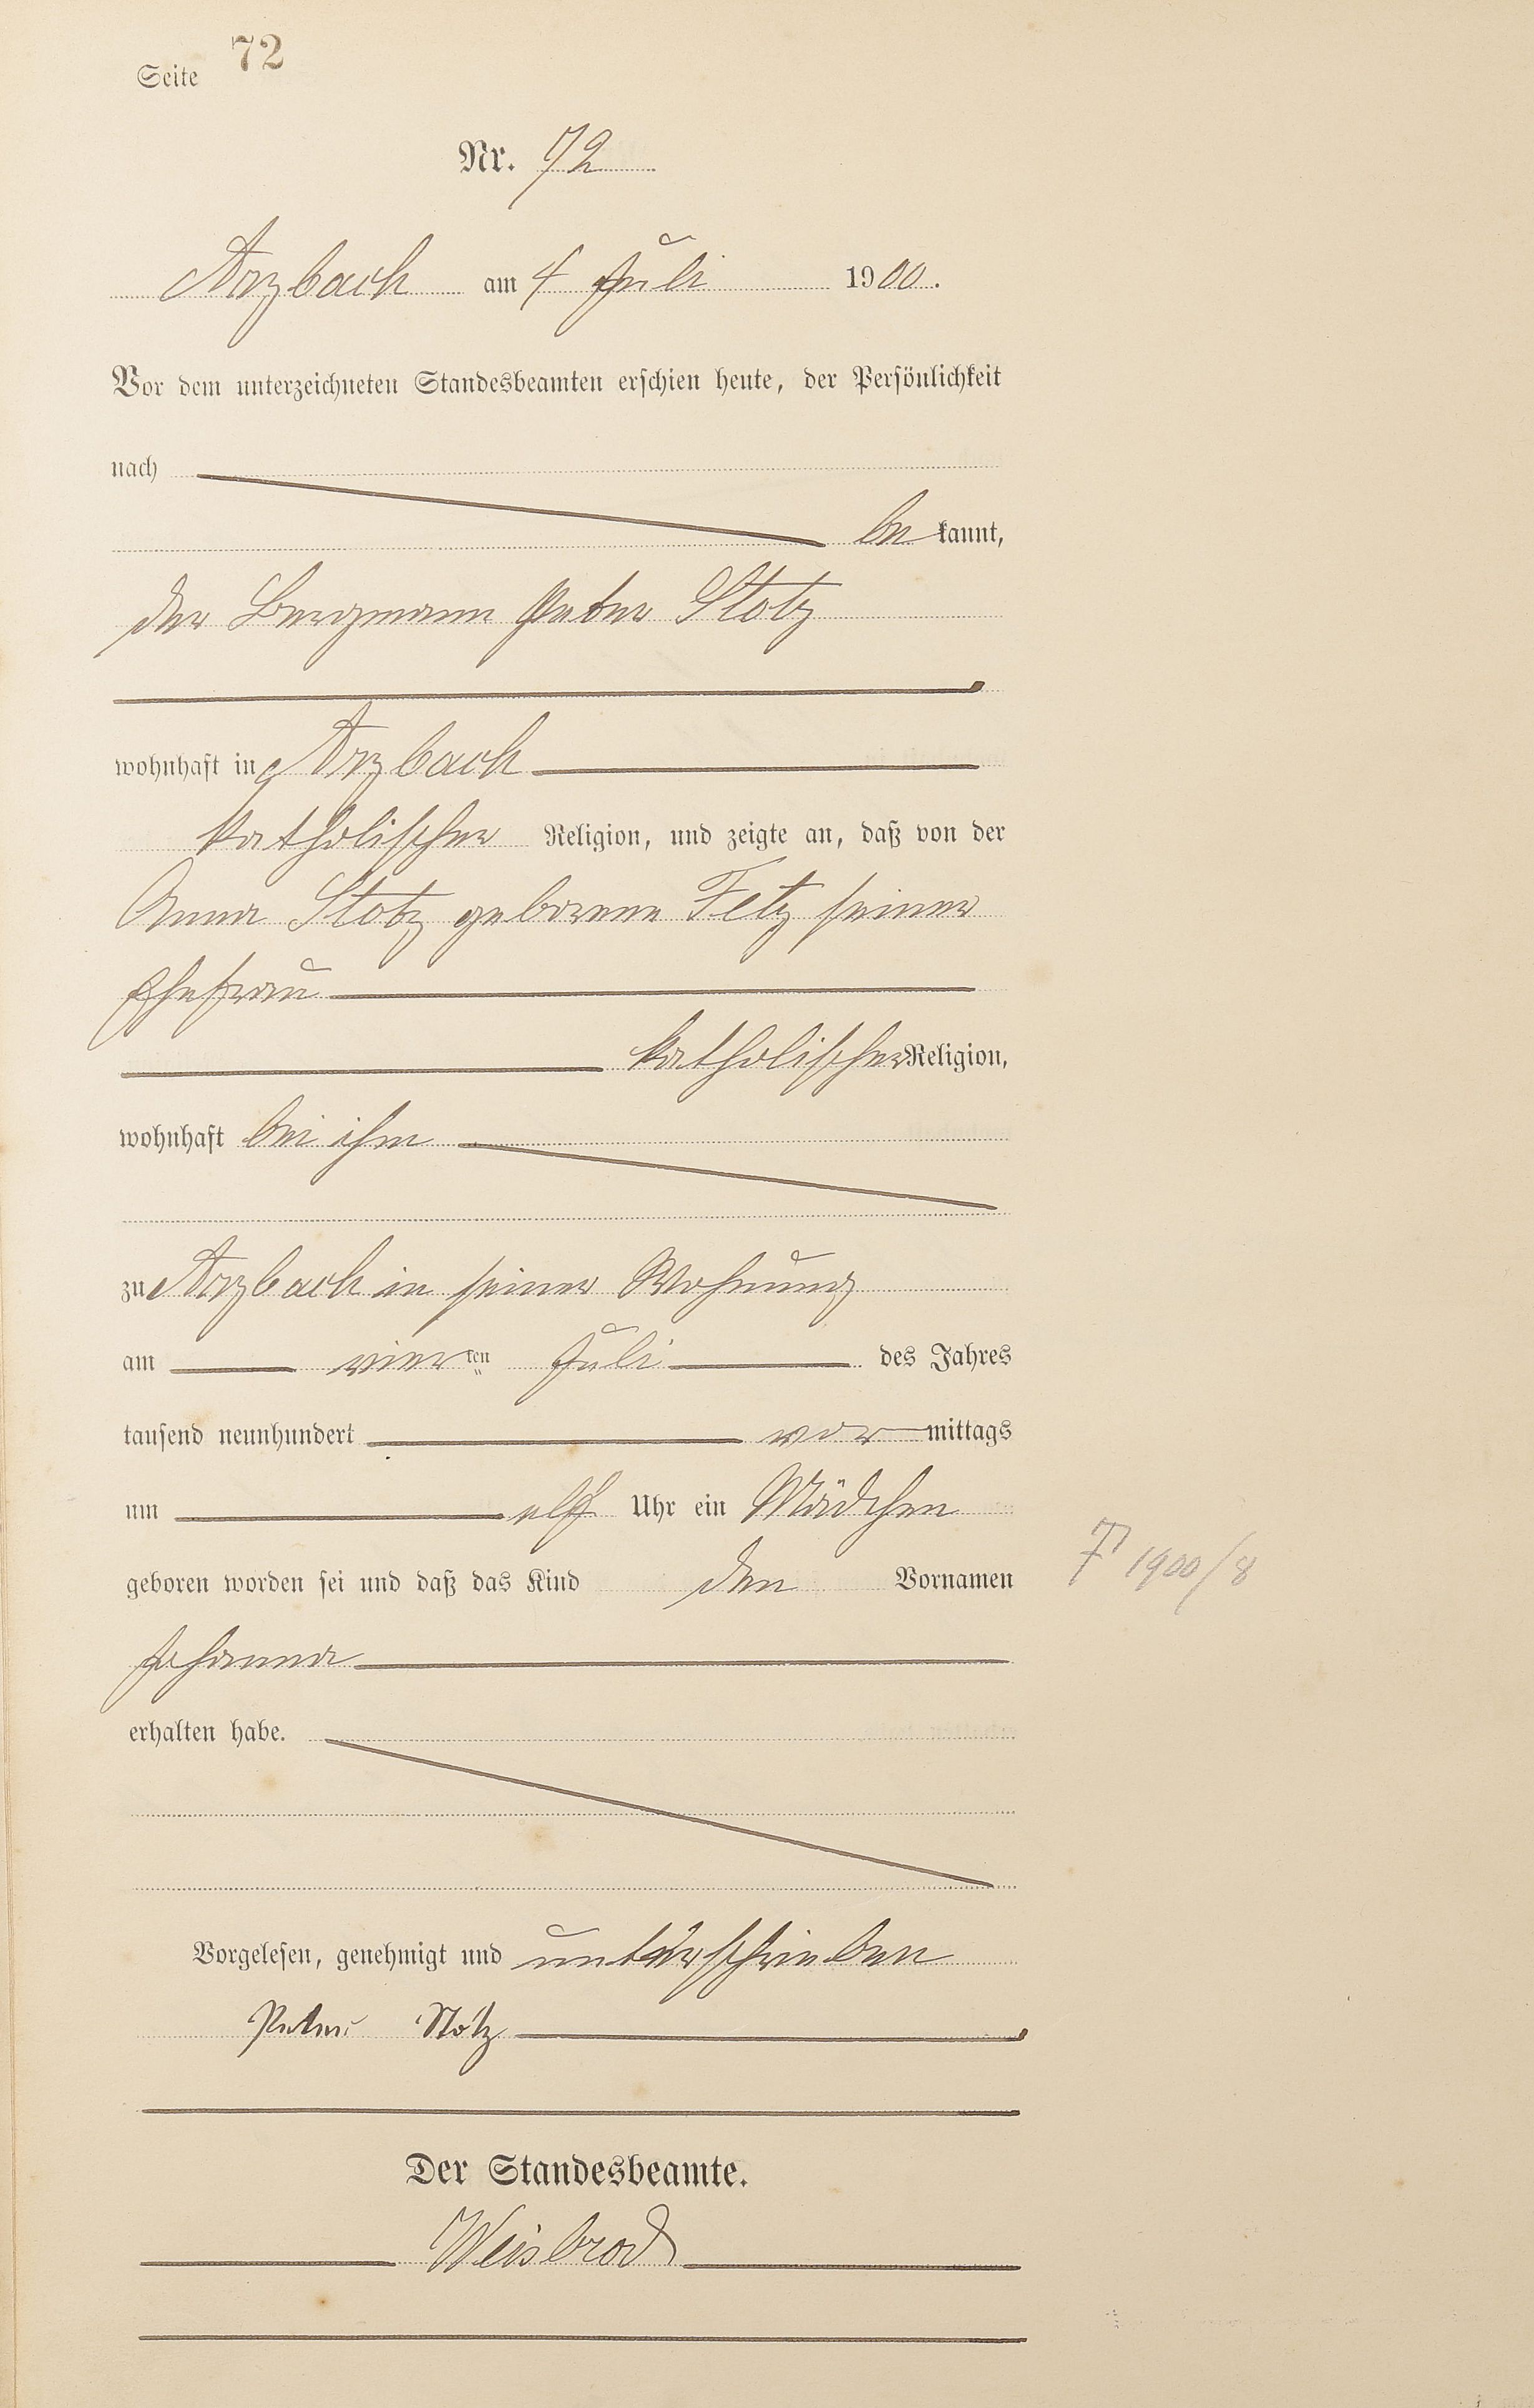 Seite 72
Nr. 72
Arzbach am 4 Juli 1900.
Vor dem unterzeichneten Standesbeamten erschien heute, der Persönlichkeit
nach
bekannt,
der Bergmann Peter Stotz
wohnhaft in Arzbach
katholischer Religion, und zeigte an, daß von der
Anna Stotz geborene Fetz seiner
Ehefrau
katholischer Religion,
wohnhaft bei ihm
zu Arzbach in seiner Wohnung
am vierten Juli des Jahres
tausend neunhundert vormittags
um elf Uhr ein Mädchen
geboren worden sei und daß das Kind den Vornamen
1900/8
Johanna
erhalten habe.
Vorgelesen, genehmigt und unterschrieben
Peter Stotz
Der Standesbeamte.
Weisbrod